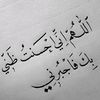 اللهم إني أحسنت ظني
بك فأجبرني